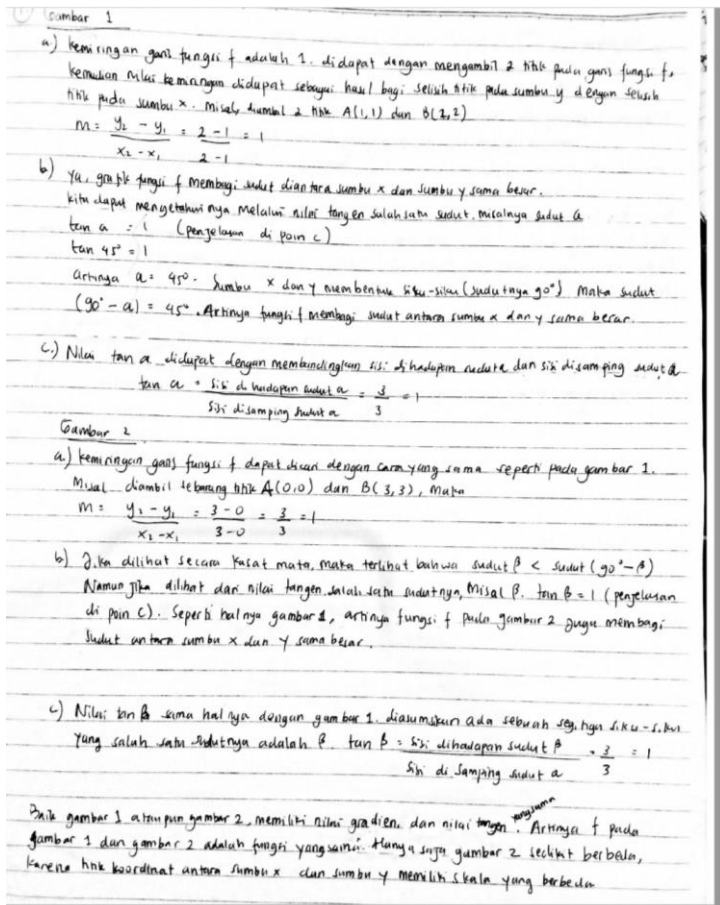 Gambar 1
a) Kemiringan garis fungsi f adalah 1. didapat dengan mengambil 2 titik pada garis fungsi f.
kemudian nilai kemiringan didapat sebagai hasil bagi selisih titik pada sumbu y dengan selisih
titik pada sumbu x. misal, diambil 2 titik A(1,1) dan B(2,2)
m = y₂ - y₁ / x₂ - x₁ = 2 - 1 / 2 - 1 = 1
b) Ya, grafik fungsi f membagi sudut diantara sumbu x dan sumbu y sama besar.
kita dapat mengetahuinya melalui nilai tangen salah satu sudut, misalnya sudut a
tan a = 1 (penjelasan di poin c)
tan 45° = 1
artinya a = 45°. Sumbu x dan y membentuk siku-siku (sudutnya 90°) maka sudut
(90° - a) = 45°. Artinya fungsi f membagi sudut antara sumbu x dan y sama besar.
c.) Nilai tan a didapat dengan membandingkan sisi dihadapan sudut a dan sisi disamping sudut a
tan a = sisi di hadapan sudut a / sisi disamping sudut a = 3 / 3 = 1
Gambar 2
a.) kemiringan garis fungsi f dapat dicari dengan cara yang sama seperti pada gambar 1.
Misal diambil sebarang titik A(0,0) dan B(3,3), maka
m = y₂ - y₁ / x₂ - x₁ = 3 - 0 / 3 - 0 = 3 / 3 = 1
b) Jika dilihat secara kasat mata, maka terlihat bahwa sudut β < sudut (90° - β)
Namun jika dilihat dari nilai tangen salah satu sudutnya, misal β. tan β = 1 (penjelasan
di poin c). Seperti halnya gambar 1, artinya fungsi f pada gambar 2 juga membagi
sudut antara sumbu x dan y sama besar.
c) Nilai tan β sama halnya dengan gambar 1. diasumsikan ada sebuah segitiga siku-siku
yang salah satu sudutnya adalah β. tan β = sisi dihadapan sudut β / sisi di samping sudut a = 3 / 3 = 1
Baik gambar 1 ataupun gambar 2, memiliki nilai gradien, dan nilai tangen yang sama. Artinya f pada
gambar 1 dan gambar 2 adalah fungsi yang sama. Hanya saja gambar 2 sedikit berbeda,
karena titik koordinat antara sumbu x dan sumbu y memiliki skala yang berbeda